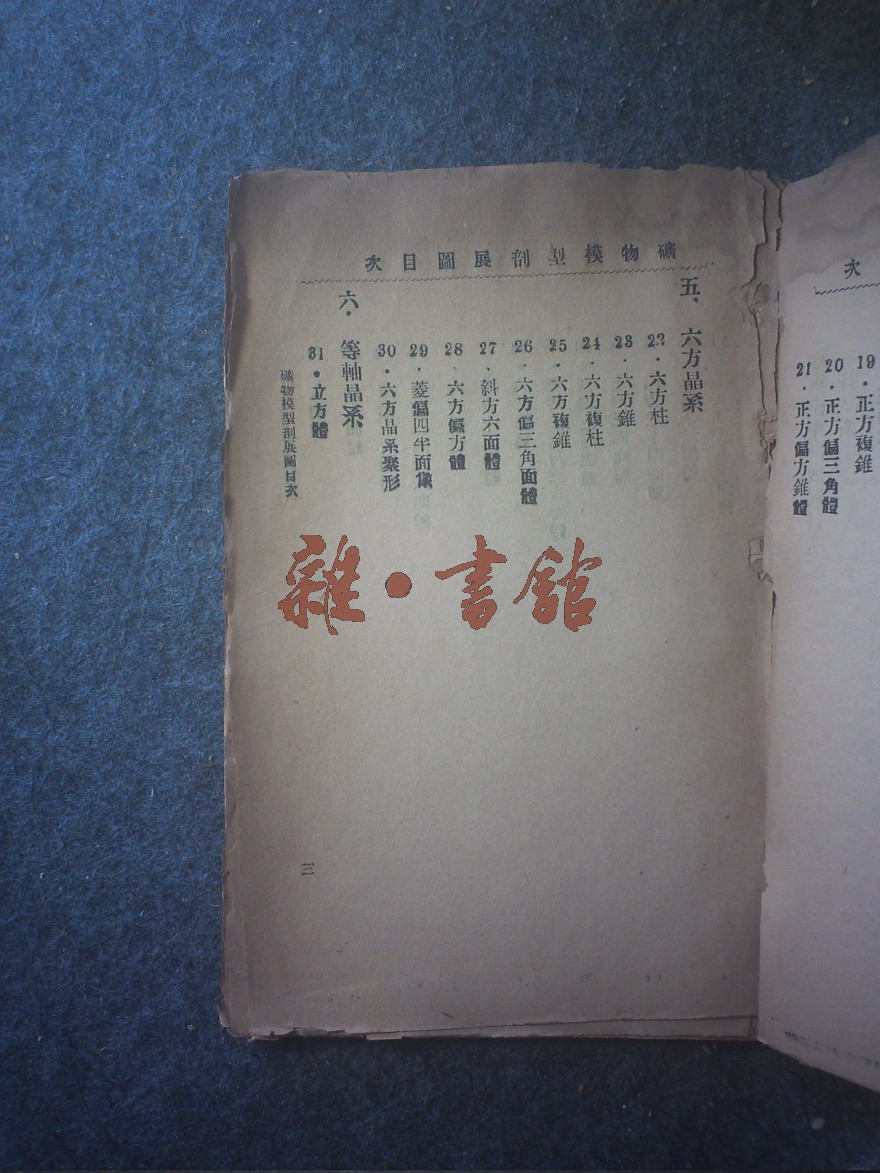 礦物模型剖展圖目次
五、六方晶系
22．六方柱
23．六方錐
24．六方複柱
25．六方複錐
26．六方偏三角面體
27．斜方六面體
28．六方偏方體
29．菱偏四半面像
30．六方晶系聚形
六．等軸晶系
31．立方體
礦物模型剖展圖目次
三
雜・書館
次
19．正方複錐
20．正方偏三角體
21．正方偏方錐體